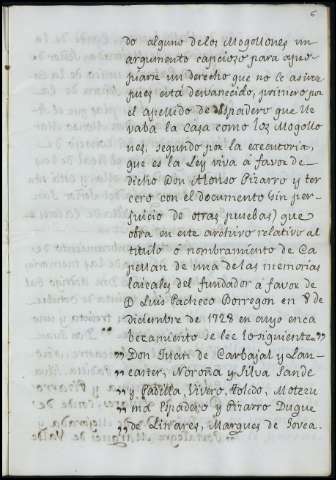 6
do alguno de los Mogollones un
argumento capcioso para apro
piarse un derecho que no le asiste
pues está desvanecido, primero por
el apellido de Espadero que lle
vaba la Casa como los Mogollo
nes, segundo por la executoria,
que es la Ley viva a favor de
dicho Don Alonso Pizarro y ter
cero con el documento (sin per
juicio de otras pruebas) que
obra en este archivo relativo al
titulo ó nombramiento de Ca
pellan de una de las memorias
laicales del fundador á favor de
D. Luis Pacheco Borregon en 8 de
diciembre de 1728 en cuyo enca
bezamiento se lee lo siguiente ,,
,, Don Juan de Carbajal y Lan
,, caster, Noroña y Silva Sande
,, y Padilla, Vivero, Toledo, Motezu
,, ma Espadero y Pizarro Duque
,, de Linares, Marques de Govea.